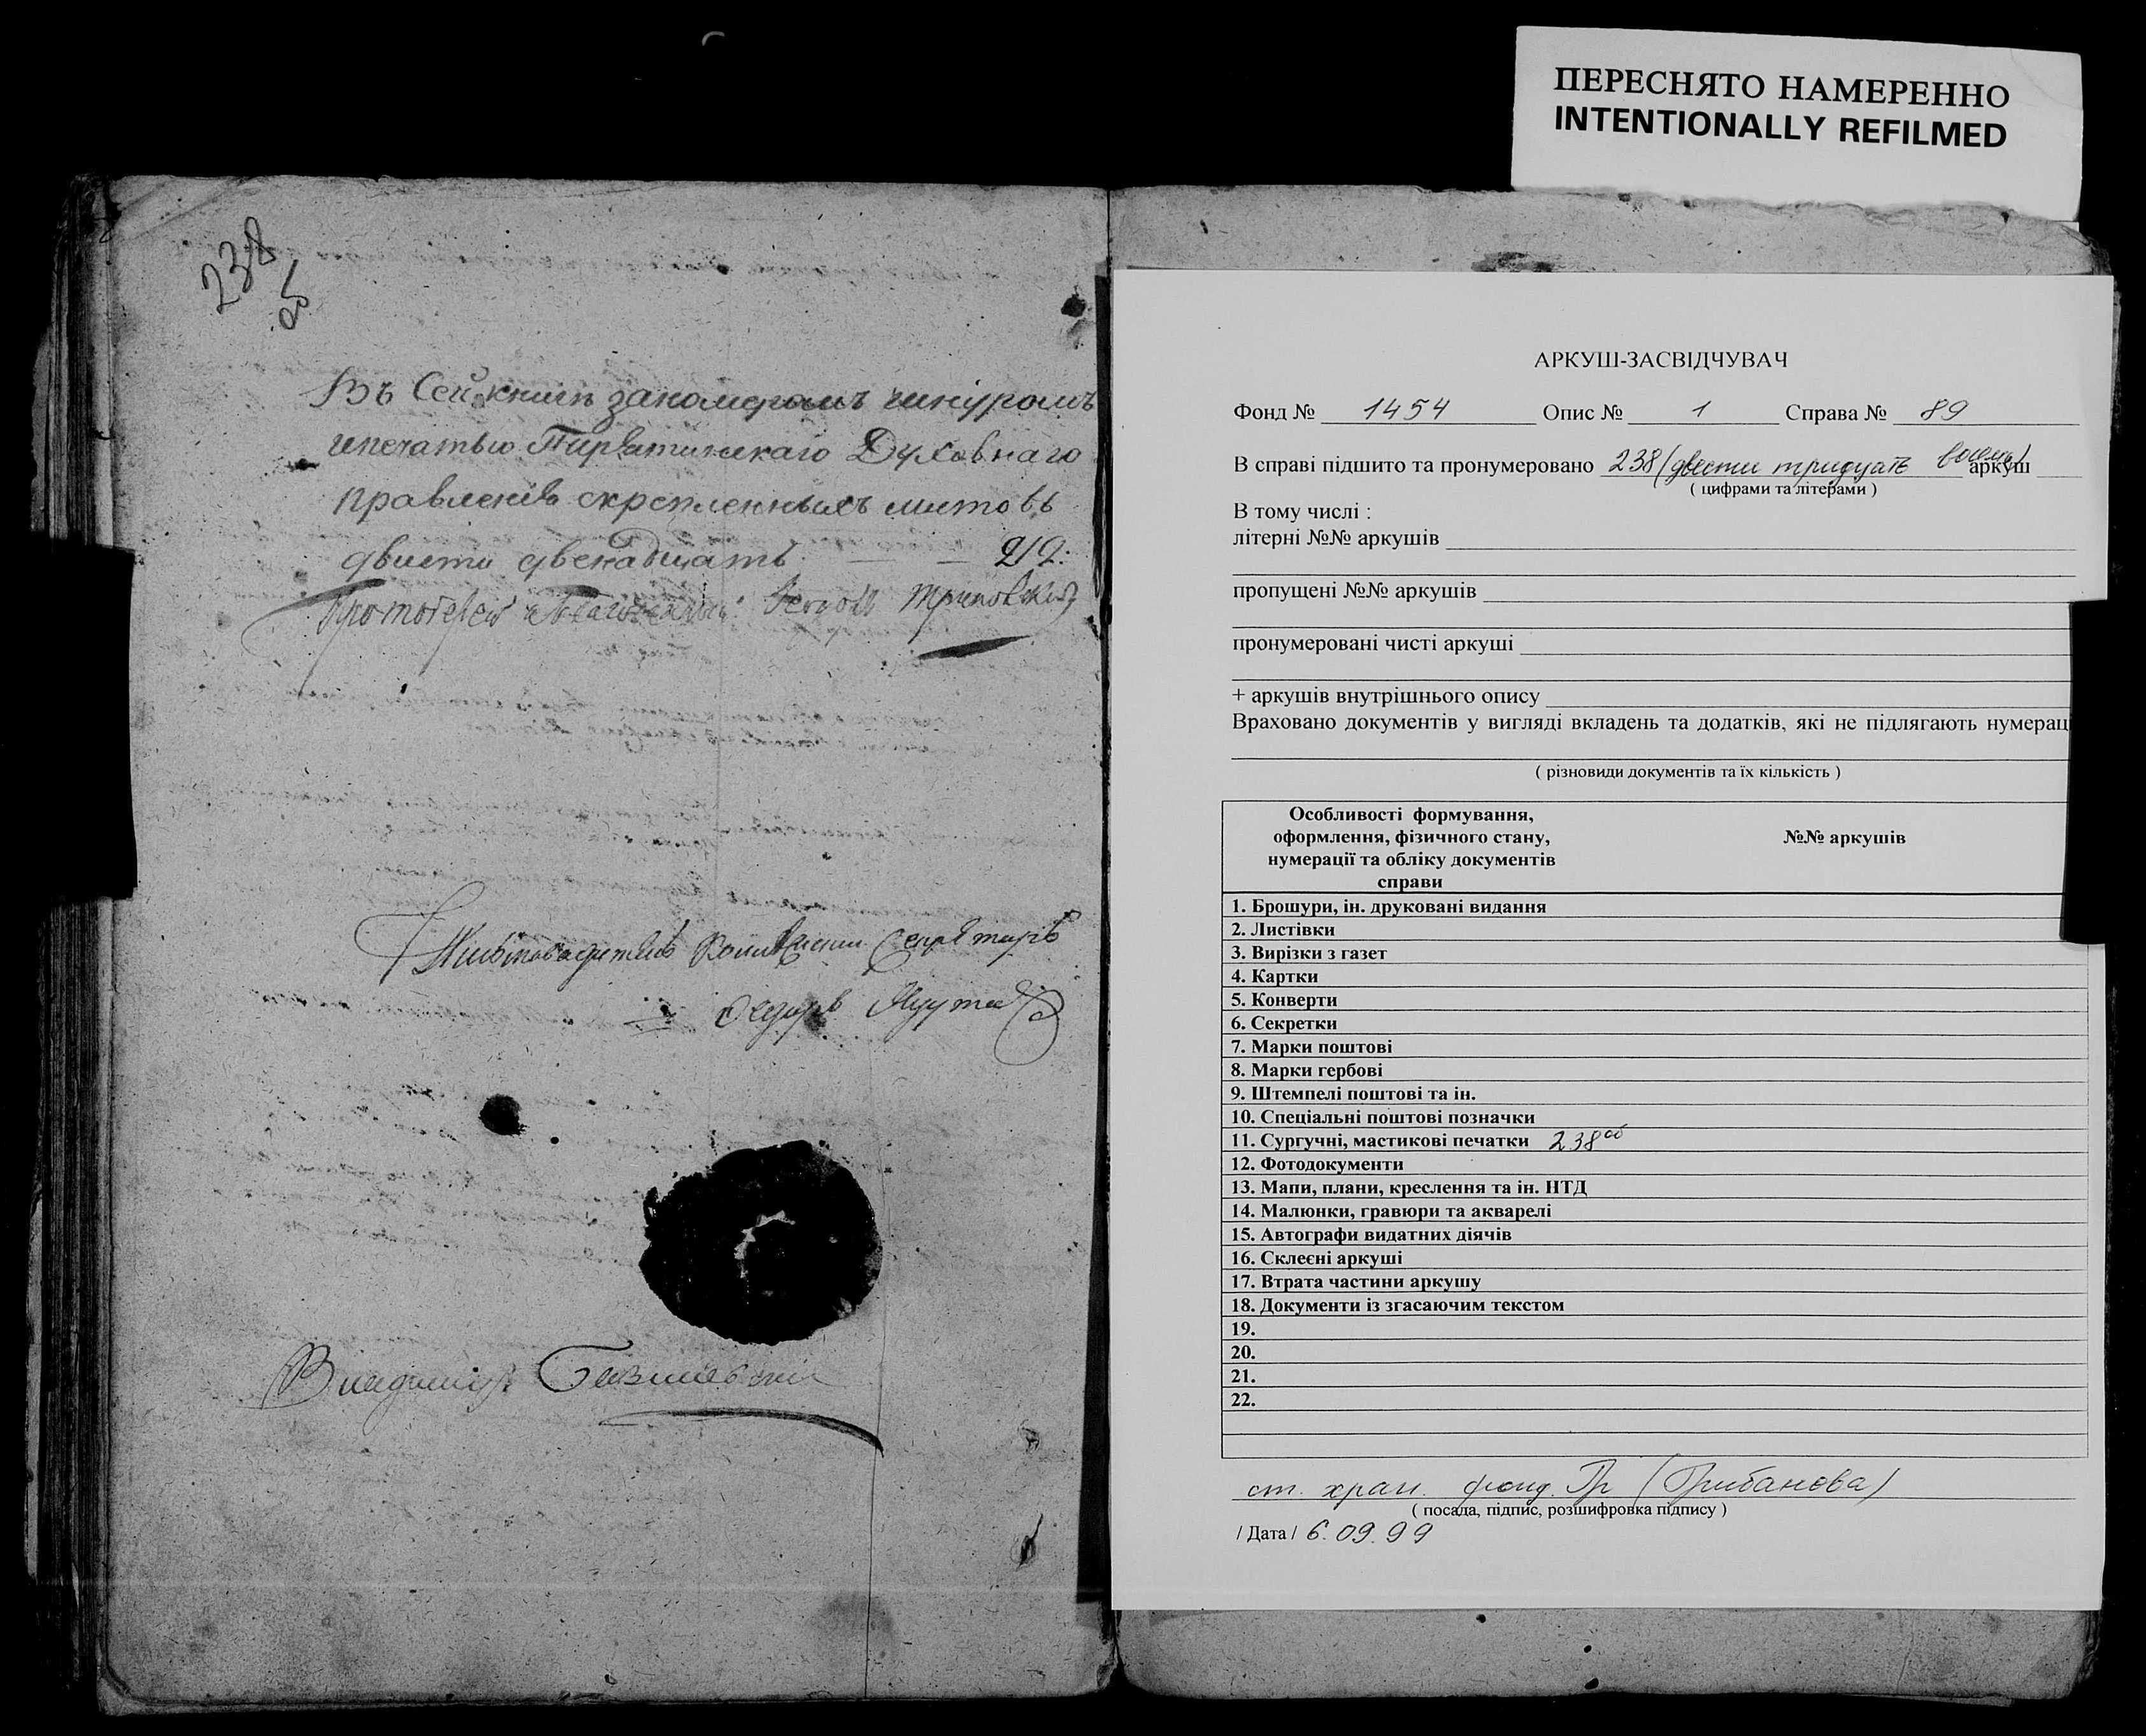 ПЕРЕСНЯТО НАМЕРЕННО
INTENTIONALLY REFILMED
238
об
Въ Сей книги заномеромъ шнуромъ
ипечатью Пирятинскаго Духовнаго
правленія скрепленныхъ листовъ
двисти двенадцать — — 212:
Протоіерей
Секретарь
Федоръ
Владимиръ
АРКУШ-ЗАСВІДЧУВАЧ
Фонд № 1454 Опис № 1 Справа № 89
В справі підшито та пронумеровано 238 (двести тридцать восемь) аркуш
( цифрами та літерами )
В тому числі :
літерні №№ аркушів
пропущені №№ аркушів
пронумеровані чисті аркуші
+ аркушів внутрішнього опису
Враховано документів у вигляді вкладень та додатків, які не підлягають нумерац
( різновиди документів та їх кількість )
Особливості формування,
оформлення, фізичного стану,
нумерації та обліку документів
справи
№№ аркушів
1. Брошури, ін. друковані видання
2. Листівки
3. Вирізки з газет
4. Картки
5. Конверти
6. Секретки
7. Марки поштові
8. Марки гербові
9. Штемпелі поштові та ін.
10. Спеціальні поштові позначки
11. Сургучні, мастикові печатки 238об
12. Фотодокументи
13. Мапи, плани, креслення та ін. НТД
14. Малюнки, гравюри та акварелі
15. Автографи видатних діячів
16. Склеєні аркуші
17. Втрата частини аркушу
18. Документи із згасаючим текстом
19.
20.
21.
22.
ст. хран. фонд. Гр (Грибанова)
( посада, підпис, розшифровка підпису )
/ Дата / 6.09.99